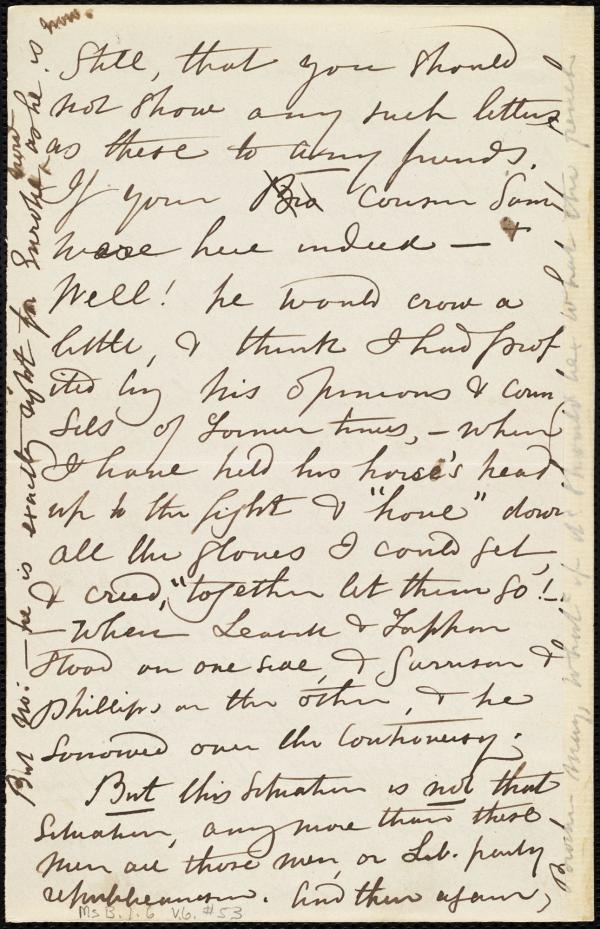 Still, that you should
not show any such letters
as these to any friends.
If your Bro cousin Sam
were here indeed —
Well! he would crow a
little, & think I had prof
ited by his opinions & coun
sels of former times, - when
I have held his horse's head
up to the fight & "hove" down
all the gloves I could get,
& cried, "together let them go!"-
- When Leavitt & Tappan
stood on one side, & Garrison &
Phillips on the other, & he
sorrowed over the controversy;
But this situation is not that
situation, any more than these
men are those men, or Lib. party
republicanism. And then again,
But no: - he is exactly right for Europe, as he is now.
here
Brother May, what if
should
what the
Ms B.1.6 V.6. #53